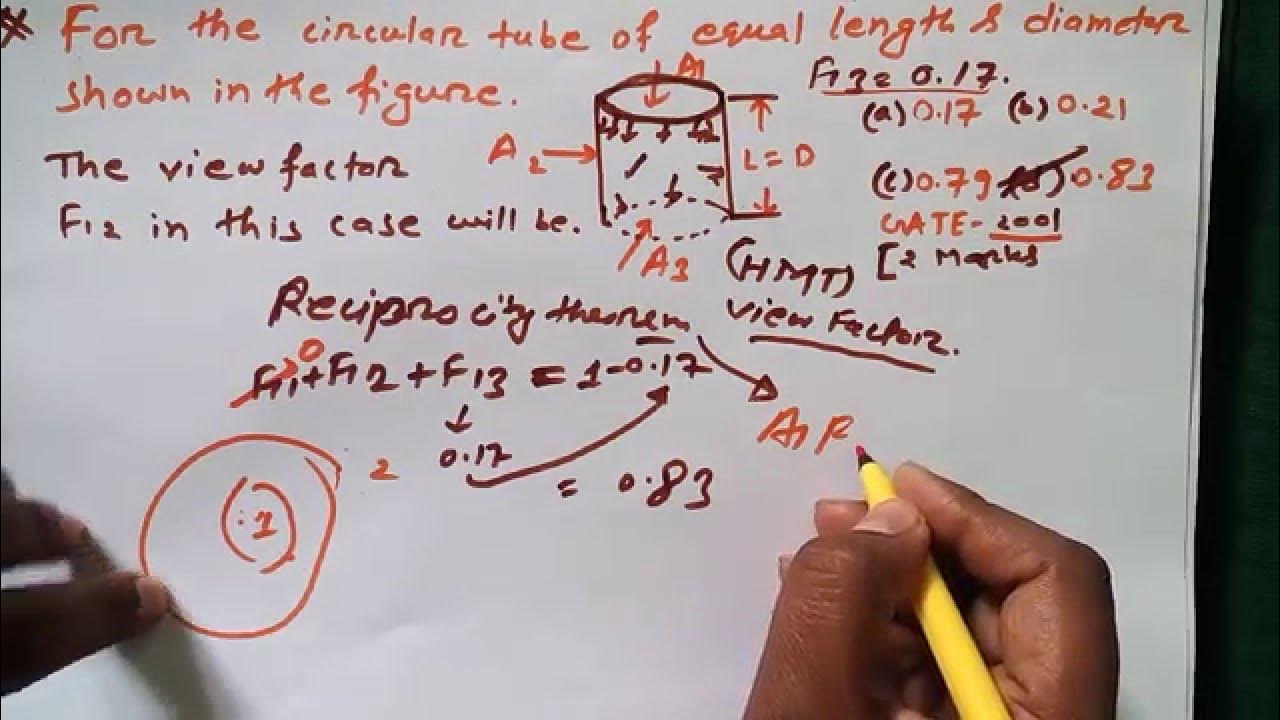 * For the circular tube of equal length & diameter
shown in the figure.
The view factor
F12 in this case will be.
A1
A2
A3
L = D
F13 = 0.17.
(a) 0.17 (b) 0.21
(c) 0.79 (d) 0.83
GATE-2001
[2 Marks
(HMT)
View Factor.
Reciprocity theorem
F11 0 + F12 + F13 = 1-0.17
0.17
= 0.83
A1 F
1
2